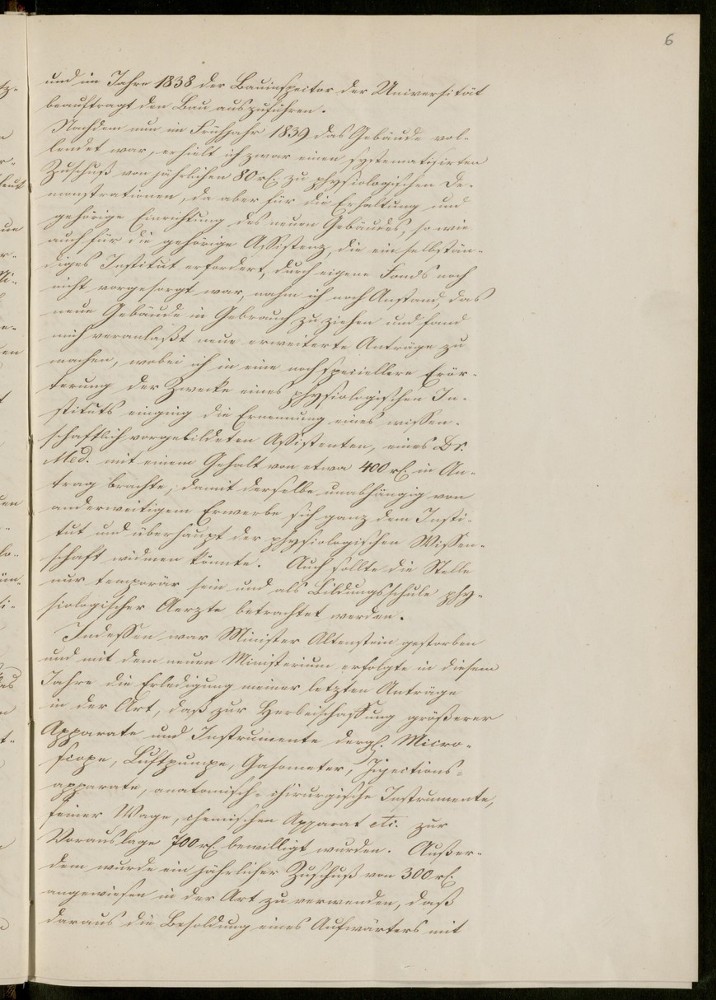 6
und im Jahre 1838 der Bauinspector der Universität
beauftragt den Bau auszuführen.
Nachdem nun im Frühjahr 1839 das Gebäude vol-
lendet war, erhielt ich zwar einen systematisirten
Zuschuß von jährlichen 80 rℓ. zu physiologischen De-
monstrationen, da aber für die Erhaltung und
gehörige Einrichtung des neuen Gebäudes, so wie
auch für die gehörige Assistenz, die ein selbstän-
diges Institut erfordert, durch eigene Fonds noch
nicht vorgesorgt war, nahm ich noch Anstand das
neue Gebäude in Gebrauch zu ziehen und fand
mich veranlaßt neue erweiterte Anträge zu
machen, wobei ich in eine noch speciellere Erör-
terung der Zwecke eines physiologischen In-
stituts einging die Ernennung eines wissen-
schaftlich vorgebildeten Assistenten, eines Dr.
Med. mit einem Gehalt von etwa 400 rℓ. in An-
trag brachte, damit derselbe unabhängig von
anderweitigem Erwerbe sich ganz dem Insti-
tut und überhaupt der physiologischen Wissen-
schaft widmen könnte. Auch sollte die Stelle
nur temporär sein und als Bildungsschule phy-
siologischer Aerzte betrachtet werden.
Indessen war Minister Altenstein gestorben
und mit dem neuen Ministerium erfolgte in diesem
Jahre die Erledigung meiner letzten Anträge
in der Art, daß zur Herbeischaffung größerer
Apparate und Instrumente dergl. Micro-
scope, Luftpumpe, Gasometer, Injections-
apparate, anatomisch-chirurgische Instrumente,
feiner Wage, chemischen Apparat etc. zur
Vorauslage 700 rℓ. bewilligt wurden. Außer-
dem wurde ein jährlicher Zuschuß von 300 rℓ.
angewiesen in der Art zu verwenden, daß
daraus die Besoldung eines Aufwärters mit